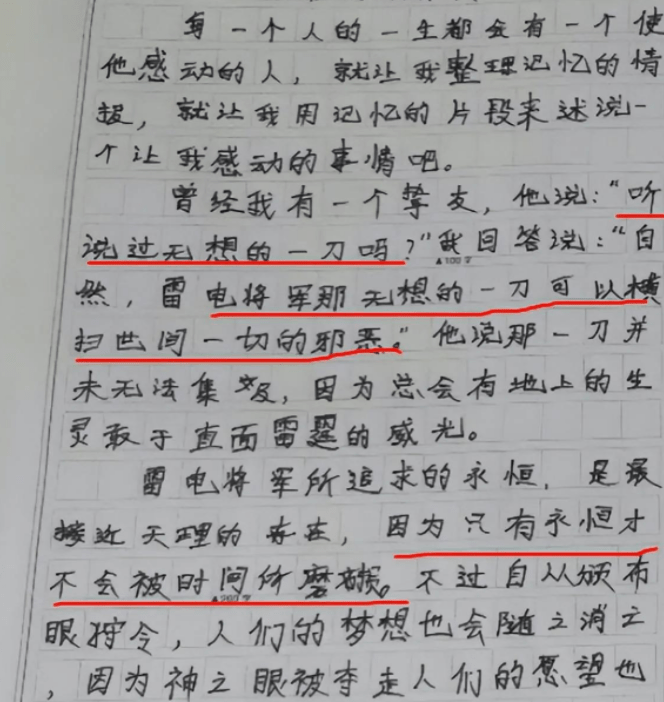 每一个人的一生都会有一个使
他感动的人，就让我整理记忆的情
报，就让我用记忆的片段来述说一
个让我感动的事情吧。
曾经我有一个挚友，他说：“听
说过无想的一刀吗？”我回答说：“自
▲100字
然，雷电将军那无想的一刀可以横
扫世间一切的邪恶。”他说那一刀并
未无法企及，因为总会有地上的生
灵敢于直面雷霆的威光。
雷电将军所追求的永恒，是最
接近天理的存在，因为只有永恒才
不会被时间所磨损。不过自从颁布
▲200字
眼狩令，人们的梦想也会随之消亡
，因为神之眼被夺走人们的愿望也